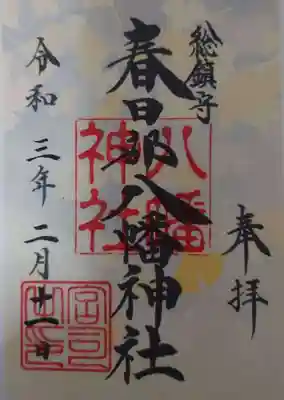 奉拝
総鎮守
春日部八幡神社
八幡神社
令和三年二月十一日
宮司之印